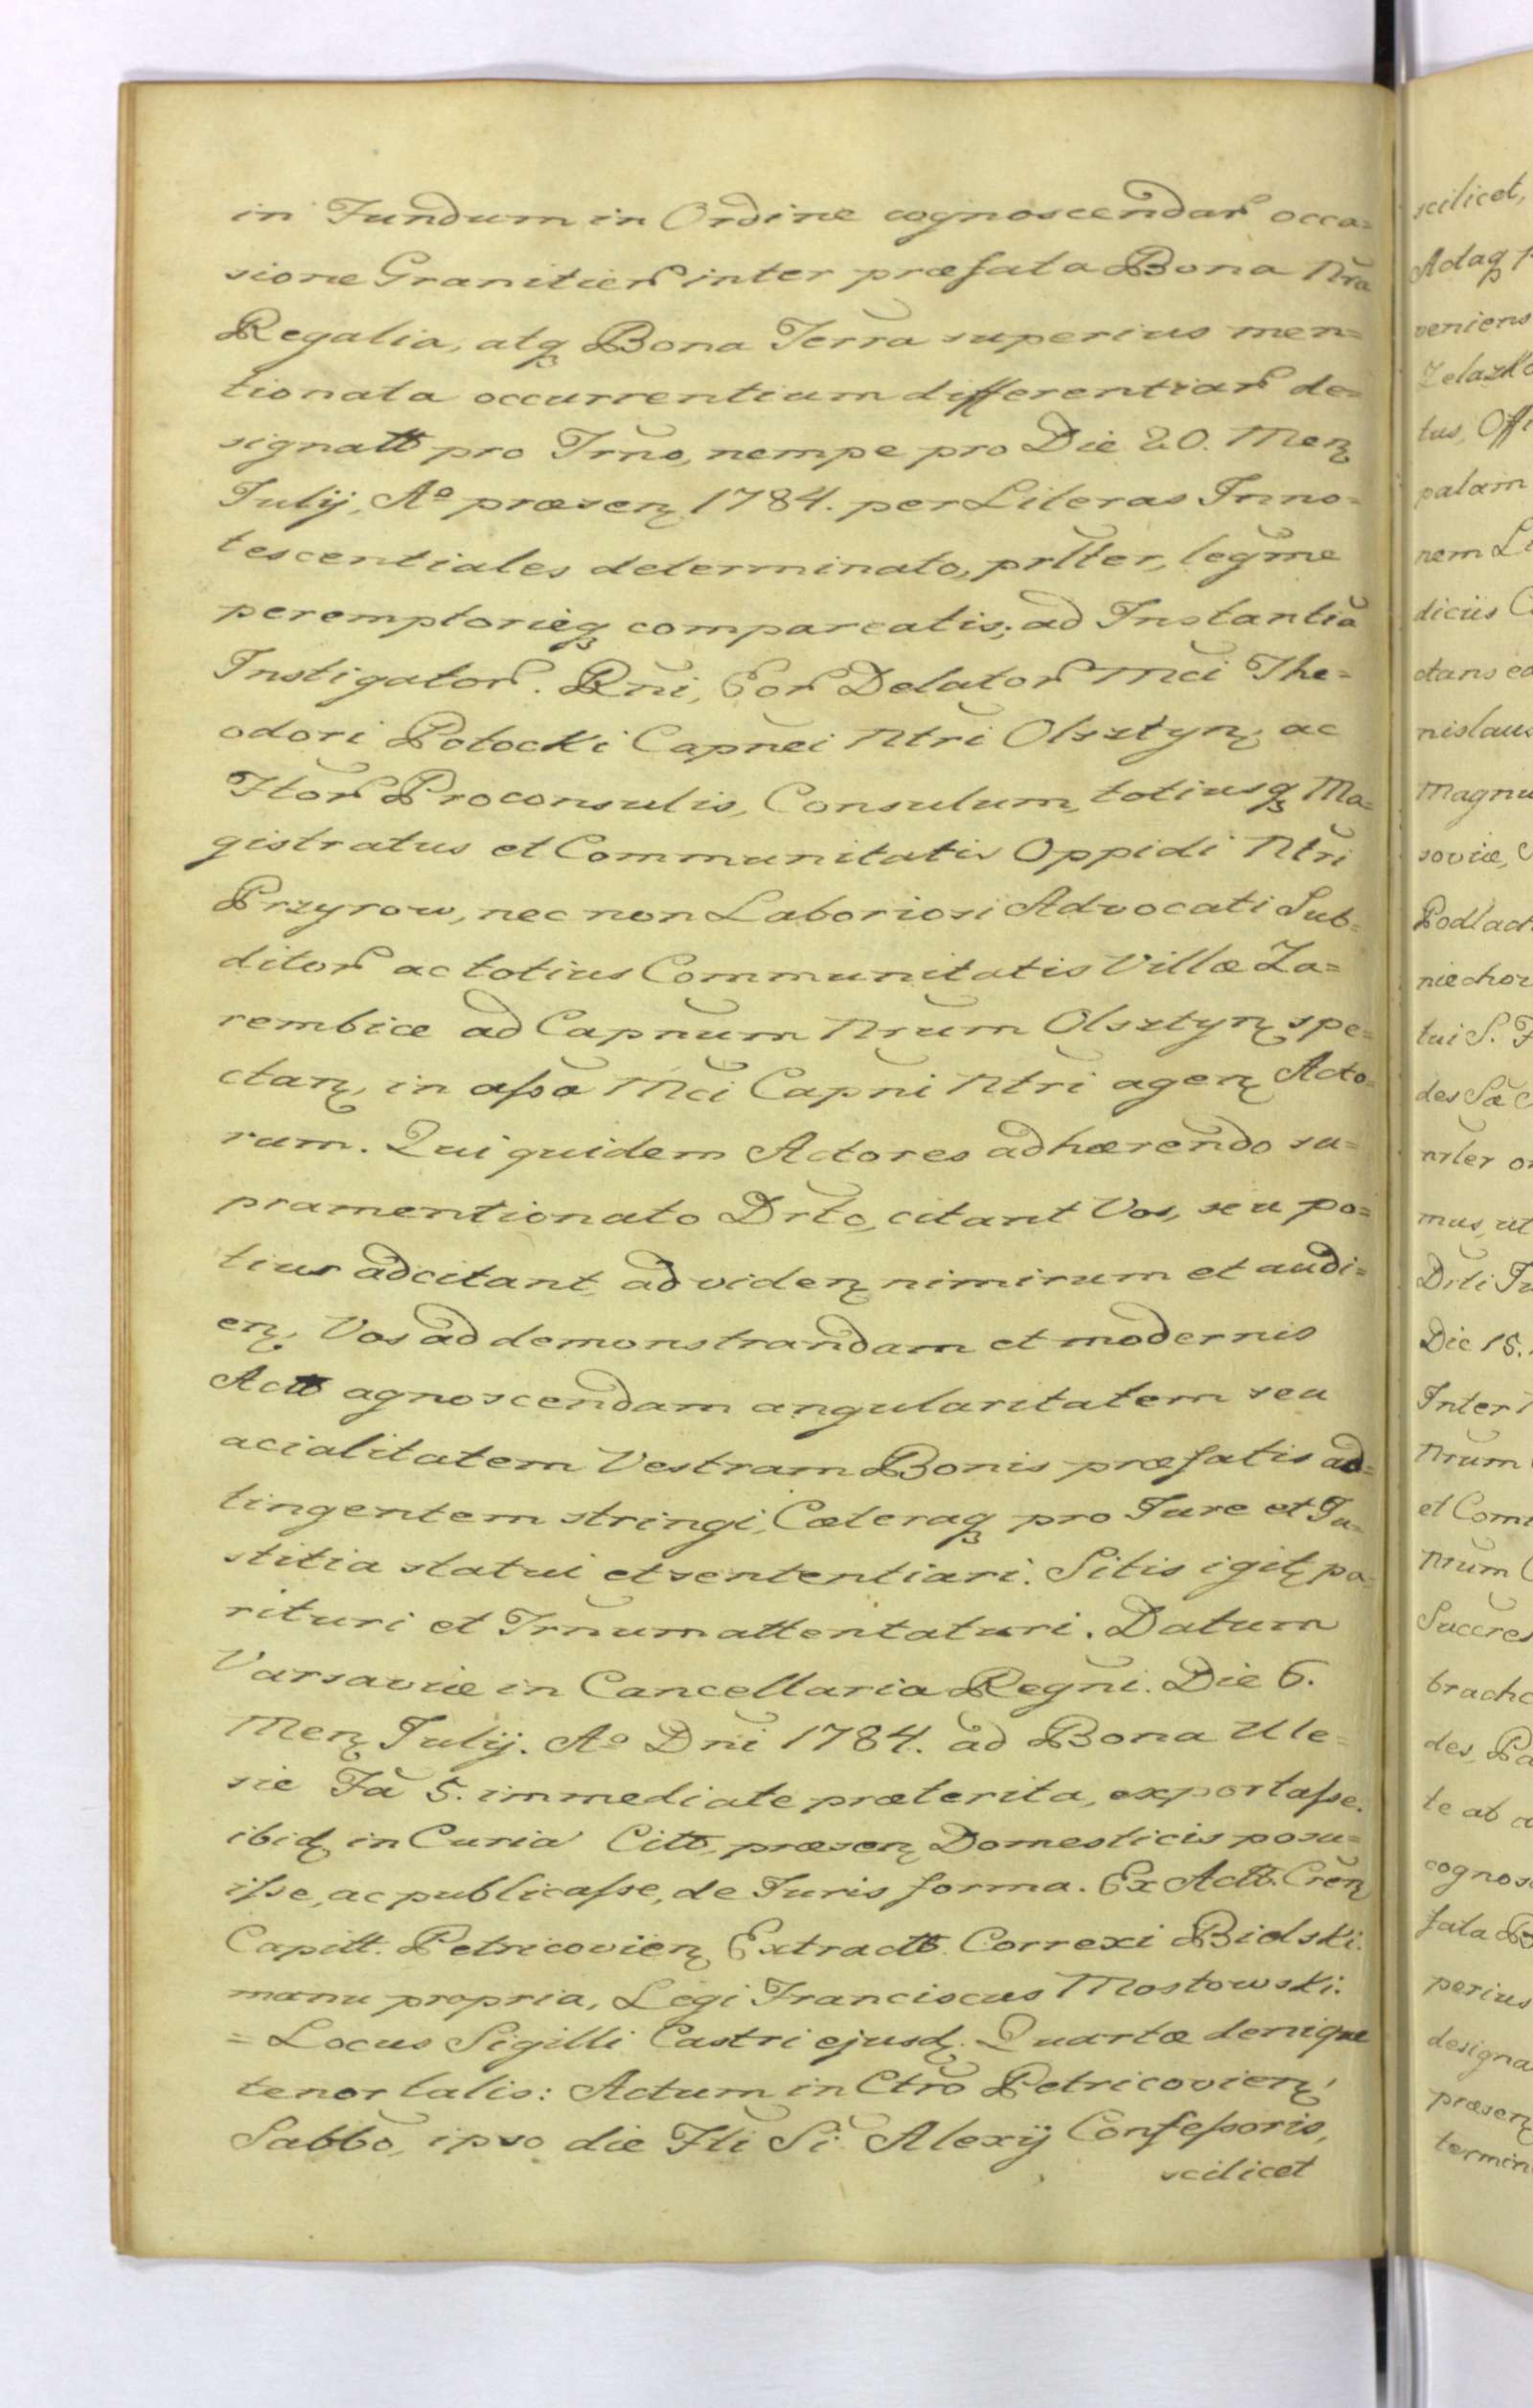 in Fundum in Ordine cognoscendar occa=
sione Granitier inter præfata Bona Nra
Regalia, atq Bona Terra superius men=
tionata occurrentium differentiar de=
signatt pro Trno, nempe pro Die 20. Men
Julij, Aº præsen 1784. per Literas Inno=
tescentiales determinato, prltter, legme
peremptorieq compareatis; ad Instantia
Instigator. Rni, Eor Delator Mci The=
odori Potocki Capnei Ntri Olsztyn, ac
Htor Proconsulis, Consulum, totiusq Ma=
gistratus et Communitatis Oppidi Ntri
Przyrow, nec non Laboriosi Advocati Sub=
ditor ac totius Communitatis Villæ Za=
rembice ad Capnum Nrum Olsztyn spe=
ctan, in assa Mci Capni Ntri agen Acto=
rum. Qui quidem Actores adhærendo su=
pramentionato Drto, citant Vos, seu po=
tius adcitant, ad viden nimirum et audi=
en, Vos ad demonstrandam et modernis
Actt agnoscendam angularitatem seu
acialitatem Vestram Bonis præfatis ad=
tingentem stringi, Cæteraq pro Jure et Ju=
stitia statui et sententiari. Sitis igit pa=
rituri et Trnum attentaturi. Datum
Varsaviæ in Cancellaria Regni. Die 6.
Men Julij. Aº Dni 1784. ad Bona Ule=
sie Fa 5. immediate præterita, exportasse.
ibid in Curia Citt, præsen Domesticis posu=
isse, ac publicasse, de Juris forma. Ex Actt. Cren
Capitt. Petricovien Extractt. Correxi Bielski.
manu propria, Legi Franciscus Mostowski.
= Locus Sigilli Castri ejusd. Quartæ denique
tenor talis: Actum in Ctro Petricovien,
Sabbo, ipso die Fti Si Alexij Confessoris,
scilicet
scilicet,
Adaq
veniens
Zelazko
tus, Offi
palam
nem Li
diciis
ctans ea
nislaus
Magnu
soviæ,
Podlach
niæ chor
tui S.
des Sæ
mus, ut
Drti
Die 15.
Inter
Nrum
et Com
Nrum
Succes
brachc
des, Pa
te ab
cognos
fata Bo
perius
designa
præsen
termin